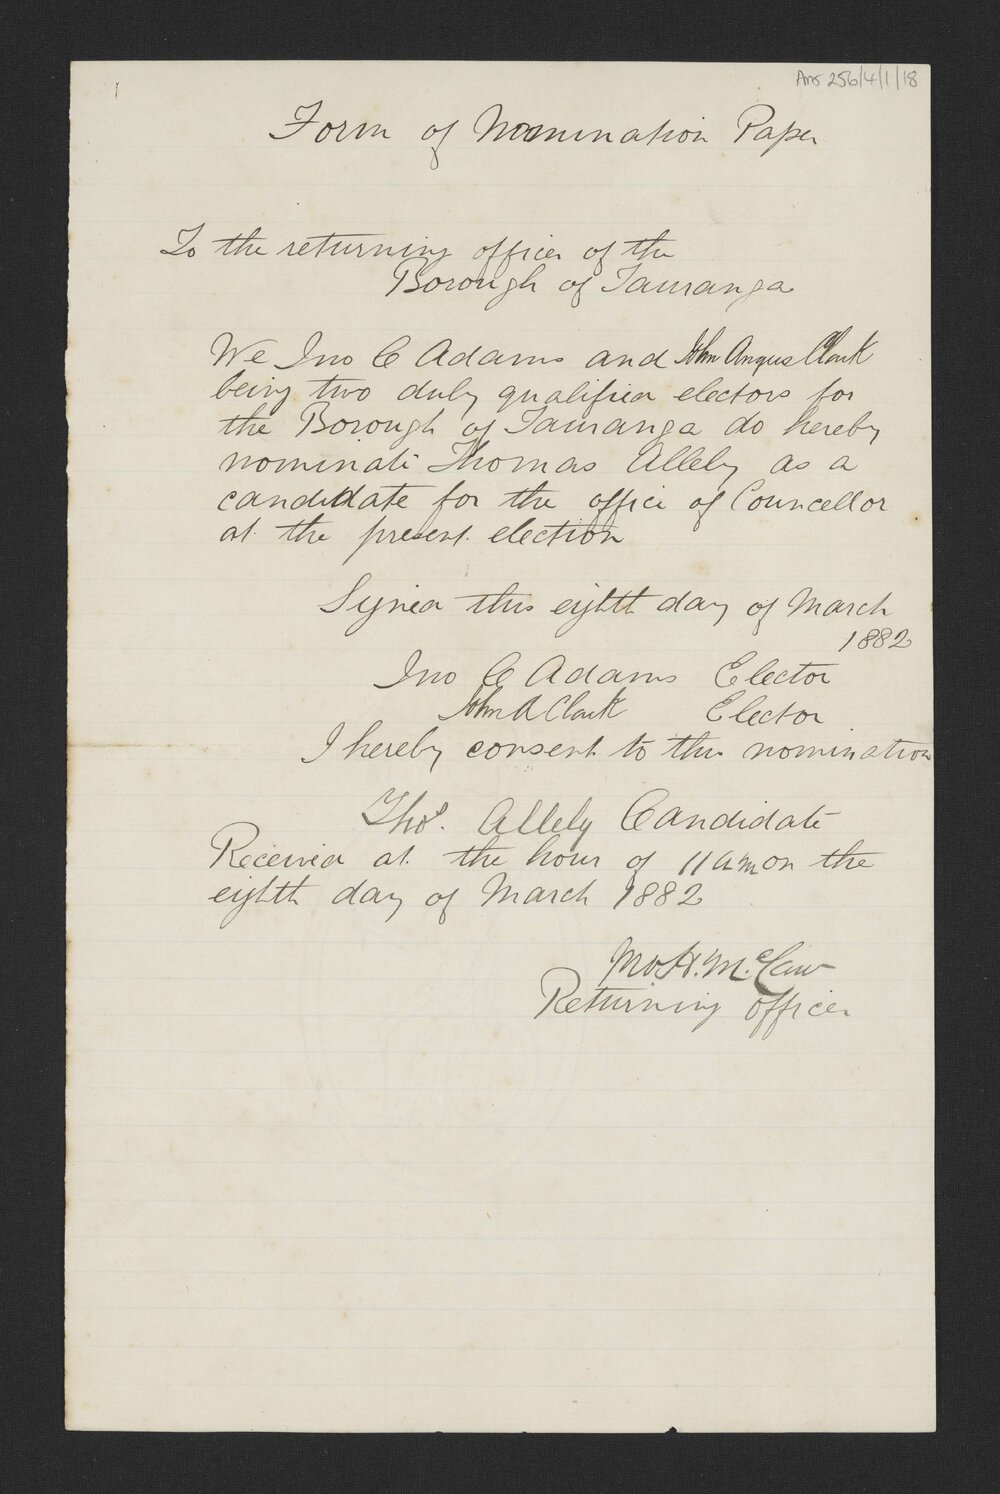 Ams 256/4/1/18
Form of Nomination Paper
To the returning officer of the
Borough of Tauranga
We Jno C Adams and John Angus Clark
being two duly qualified electors for
the Borough of Tauranga do hereby
nominate Thomas Allely as a
candidate for the office of Councellor
at the present election
Signed this eightt day of March
1882
Jno C Adams Elector
John A Clark Elector
I hereby consent to this nomination
Thos. Allely Candidate
Received at the hour of 11 am on the
eightth day of March 1882
Returning officer